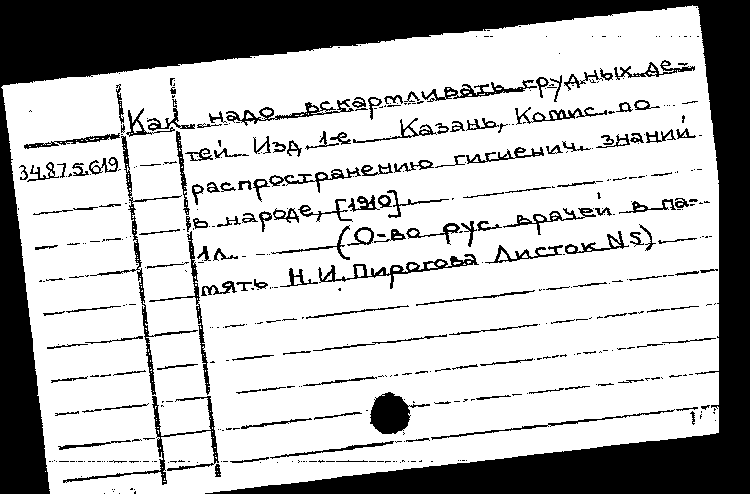 Как надо вскармливать грудных де-
тей Изд. 1-е. Казань, Комис. по
34.87.5.619
распространению гигиенич. знаний
в народе, [1910].
1л. (О-во рус. врачей в па-
мять Н.И. Пирогова Листок N5).